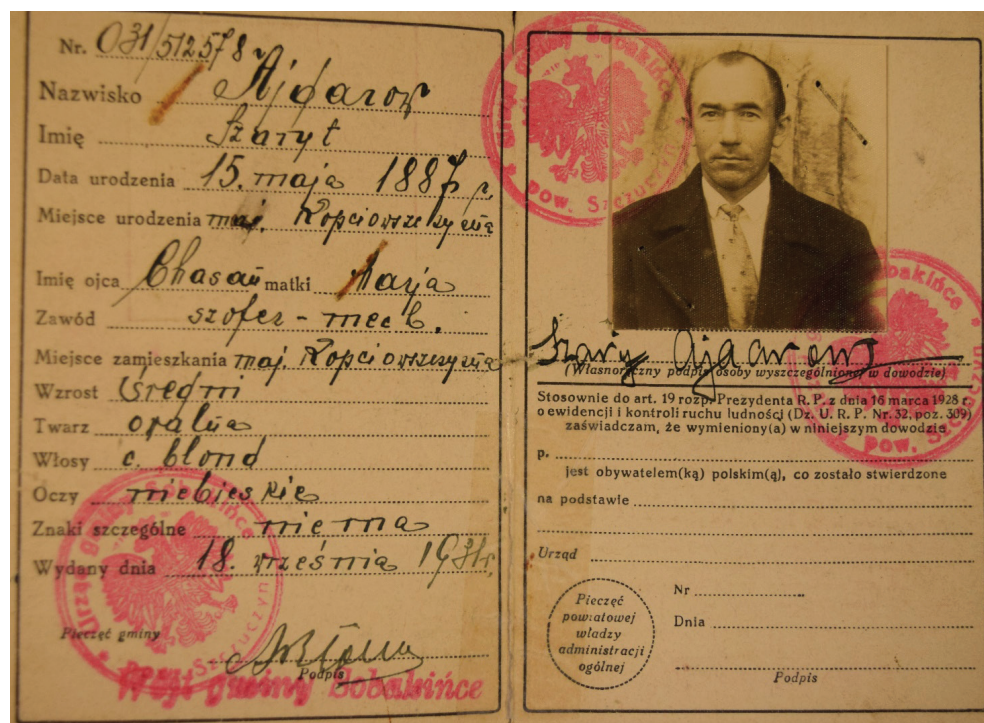 Nr. 031/512578
Nazwisko Ajdarow
Imię Szaryt
Data urodzenia 15. maja 1887 r.
Miejsce urodzenia maj. Kopciowszczyzna
Imię ojca Chasań matki Marja
Zawód szofer - mech.
Miejsce zamieszkania maj. Kopciowszczyzna
Wzrost średni
Twarz owalna
Włosy c. blond
Oczy niebieskie
Znaki szczególne nie ma
Wydany dnia 18. września 1931 r.
Pieczęć gminy
Podpis
Wójt gminy Sobakińce
Urząd gminy Sobakińce pow. Szczuczyn
Urząd gminy Sobakińce
pow. Szczuczyn
Sobakińce
pow. Szczuczyn
Szary Ajdarow
(Własnoręczny podpis osoby wyszczególnionej w dowodzie)
Stosownie do art. 19 rozp. Prezydenta R. P. z dnia 16 marca 1928 r.
o ewidencji i kontroli ruchu ludności (Dz. U. R. P. Nr. 32, poz. 309)
zaświadczam, że wymieniony(a) w niniejszym dowodzie
p.
jest obywatelem(ką) polskim(ą), co zostało stwierdzone
na podstawie
Urząd
Pieczęć
powiatowej
władzy
administracji
ogólnej
Nr
Dnia
Podpis